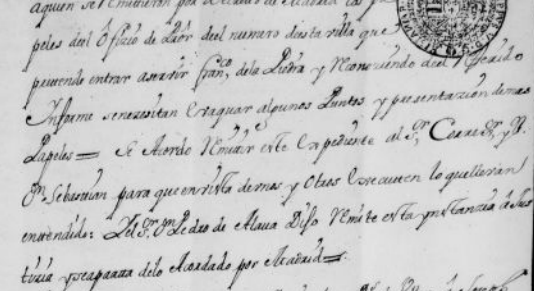 aquien se remitieran por
peles del Ofizio de Prôr del numero desta villa que
pretende entrar aservir Franco, dela Piedra y Reconoziendo del Referido
Informe senezesitan Evaquar algunos Puntos y presentazion demas
Papeles = Se Acordo Remitir este Expediente al Sr, Correxr, y
Dn Sebastian para que envista demos y Otros Executen lo quellevan
entendido: Del Sr, Dn Pedro de Alava Dijo Remite esta ynstanzia â Jus
tizia ysesepara delo Acordado por Madrid =